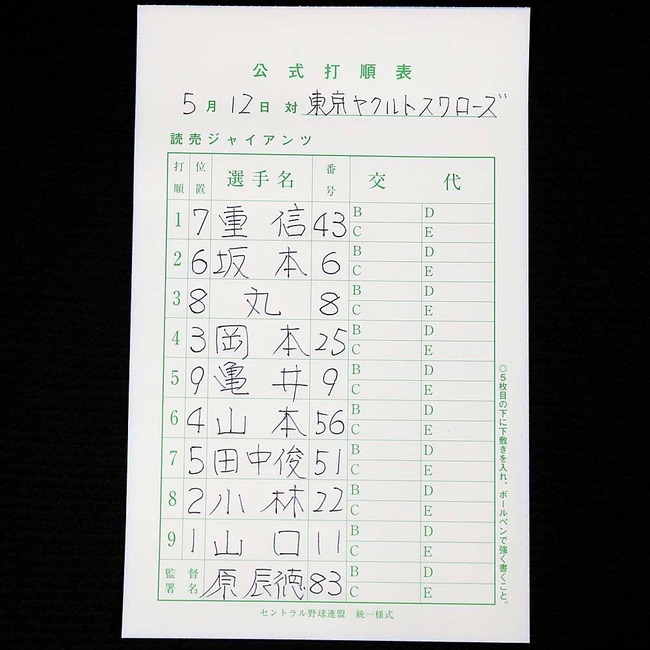 公式打順表
5月12日 対 東京ヤクルトスワローズ
読売ジャイアンツ
打順 位置 選手名 番号 交代
1 7 重信 43 B D C E
2 6 坂本 6 B D C E
3 8 丸 8 B D C E
4 3 岡本 25 B D C E
5 9 亀井 9 B D C E
6 4 山本 56 B D C E
7 5 田中俊 51 B D C E
8 2 小林 22 B D C E
9 1 山口 11 B D C E
監督署名 原辰徳 83 B D C E
セントラル野球連盟 統一様式
◎5枚目の下に下敷きを入れ、ボールペンで強く書くこと。